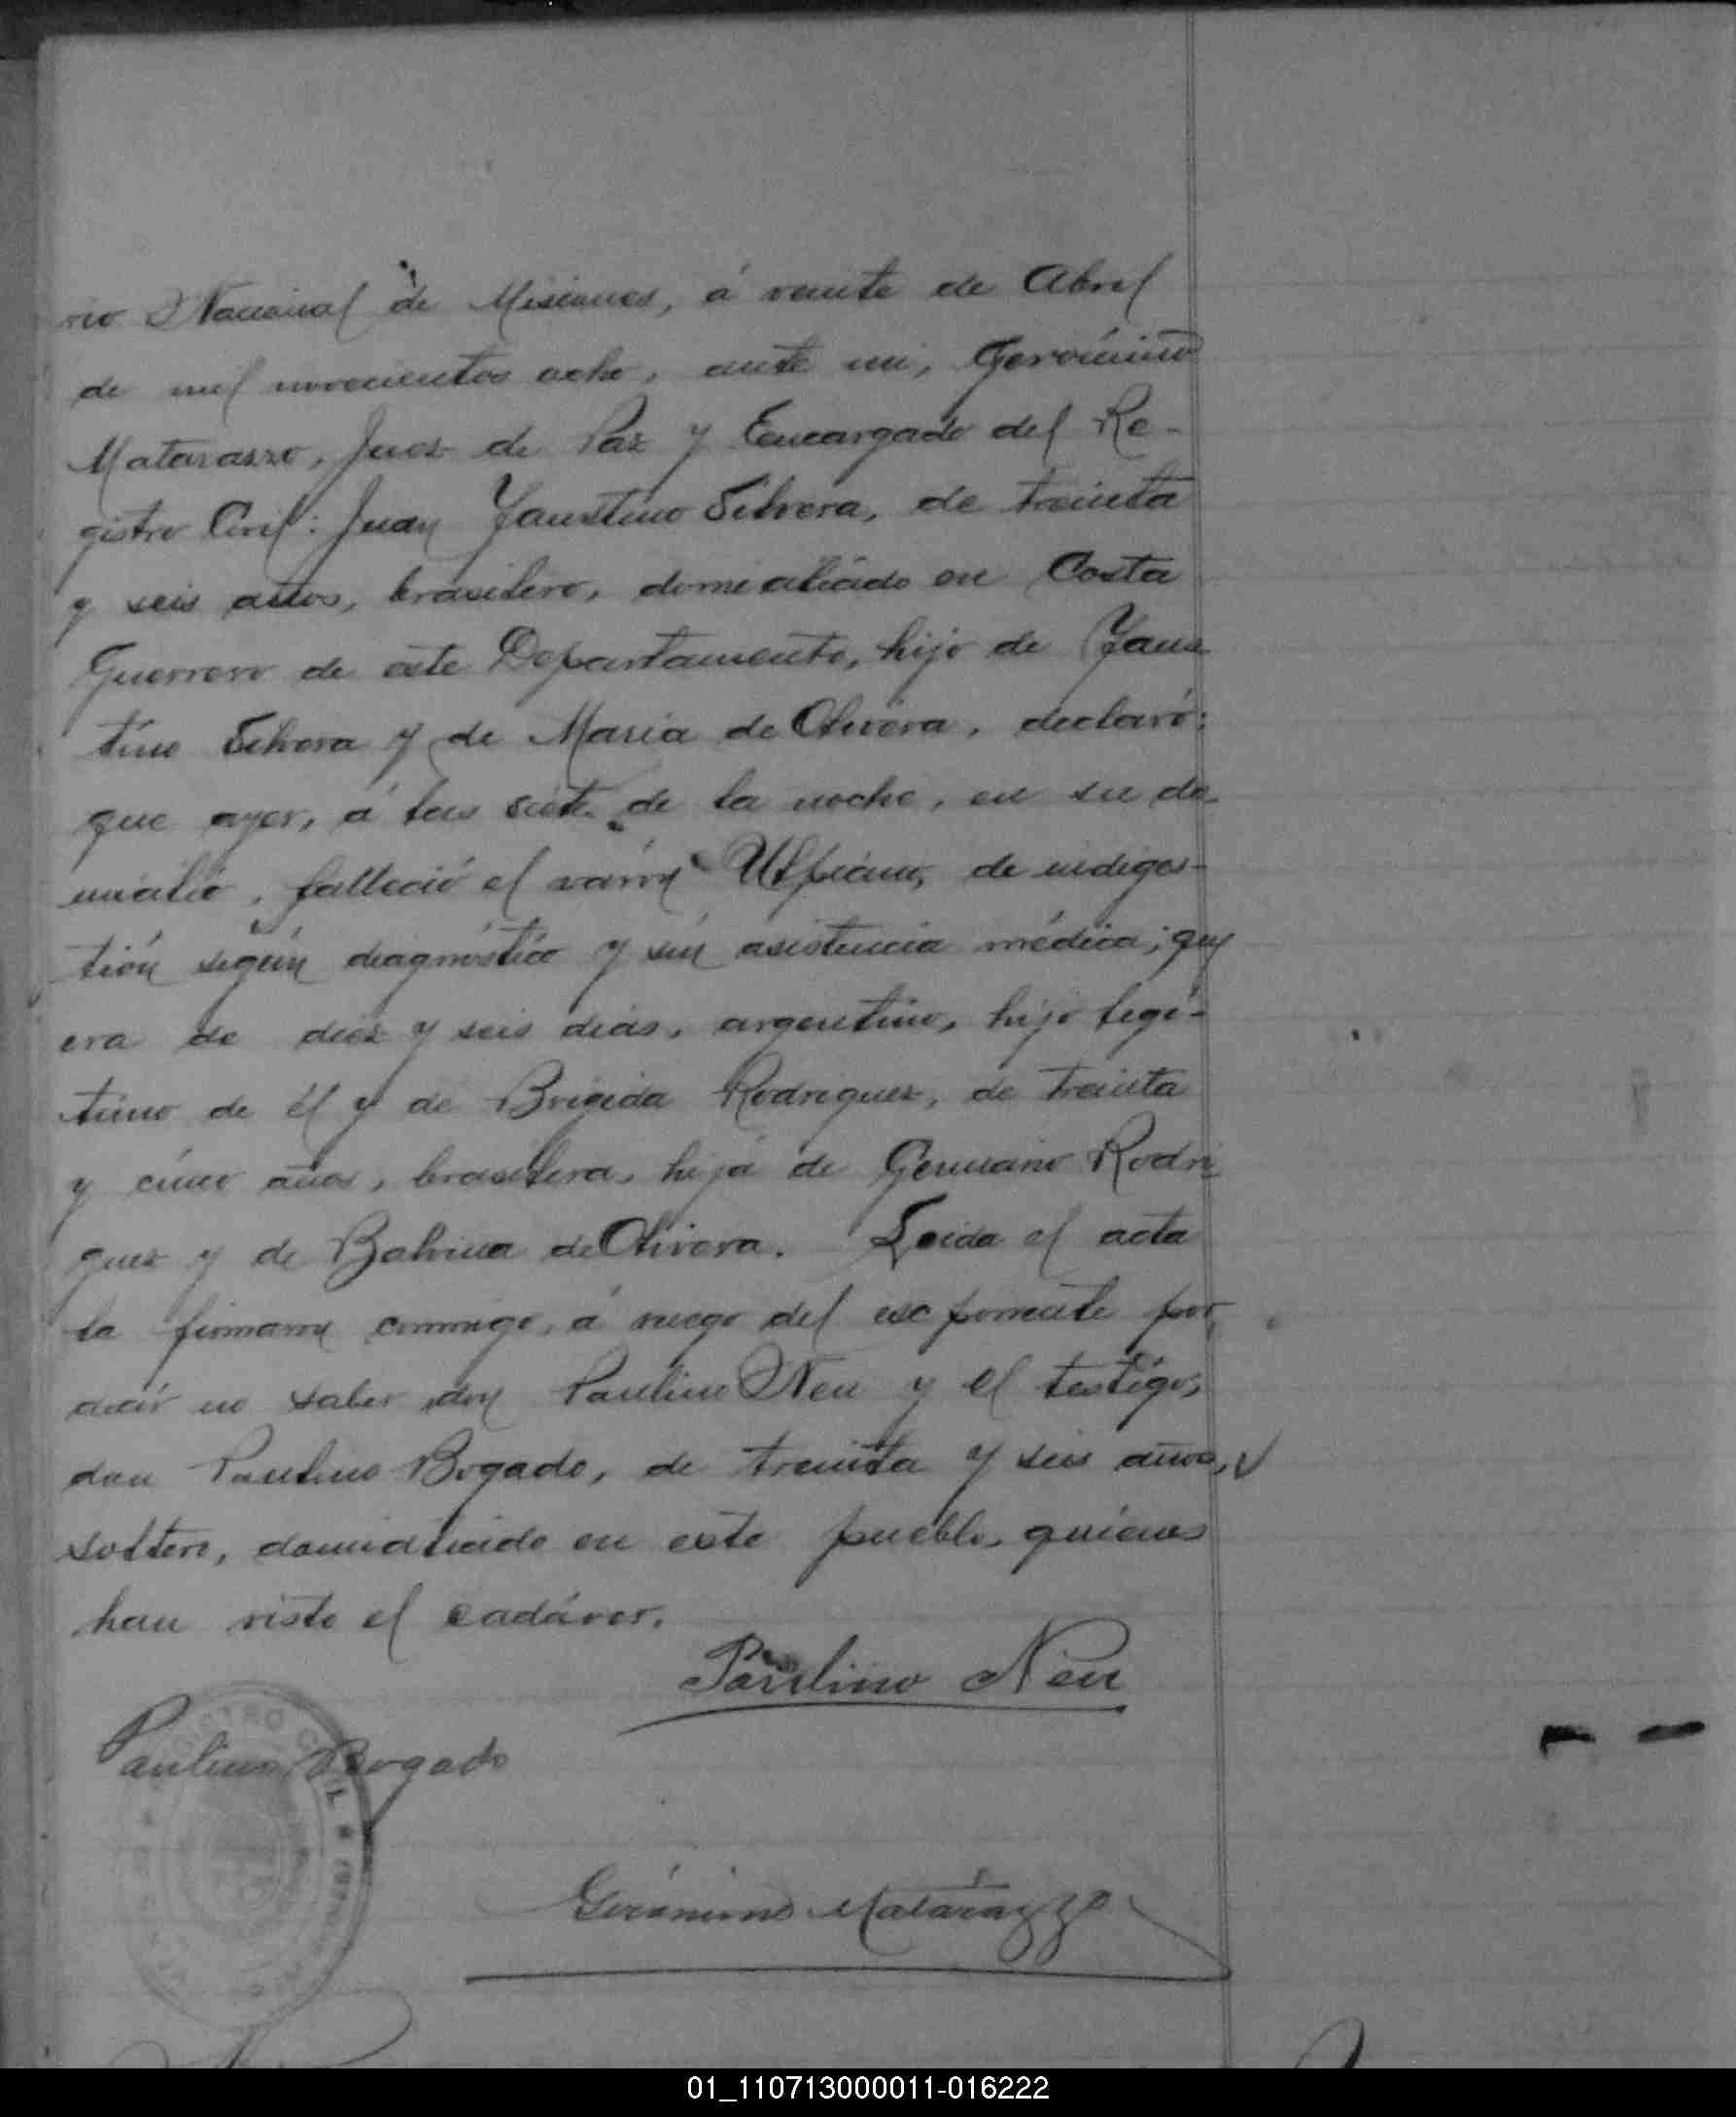 rio Nacional de Misiones, á veinte de Abril
de mil novecientos ocho, ante mi, Gerónimo
Matarazzo, Juez de Paz y Encargado del Re-
gistro Civil: Juan Faustino Silvera, de treinta
y seis años, brasilero, domiciliado en Costa
Guerrero de este Departamento, hijo de Faus
tino Silvera y de Maria de Olivera, declaró:
que ayer, á las siete de la noche, en su do-
micilio, falleció el varón Ulpiano, de indiges-
tión según diagnóstico y sin asistencia médica; que
era de diez y seis dias, argentino, hijo legí-
timo de él y de Brigida Rodriguez, de treinta
y cinco años, brasilera, hija de Germano Rodri
guez y de Balvina de Olivera. Leida el acta
la firmaron conmigo, á ruego del exponente por
decir no saber don Paulino Neu y el testigo,
don Paulino Bogado, de treinta y seis años,
soltero, domiciliado en este pueblo, quienes
han visto el cadáver.
Paulino Neu
Paulino Bogado
Gerónimo Matarazzo
01_110713000011-016222